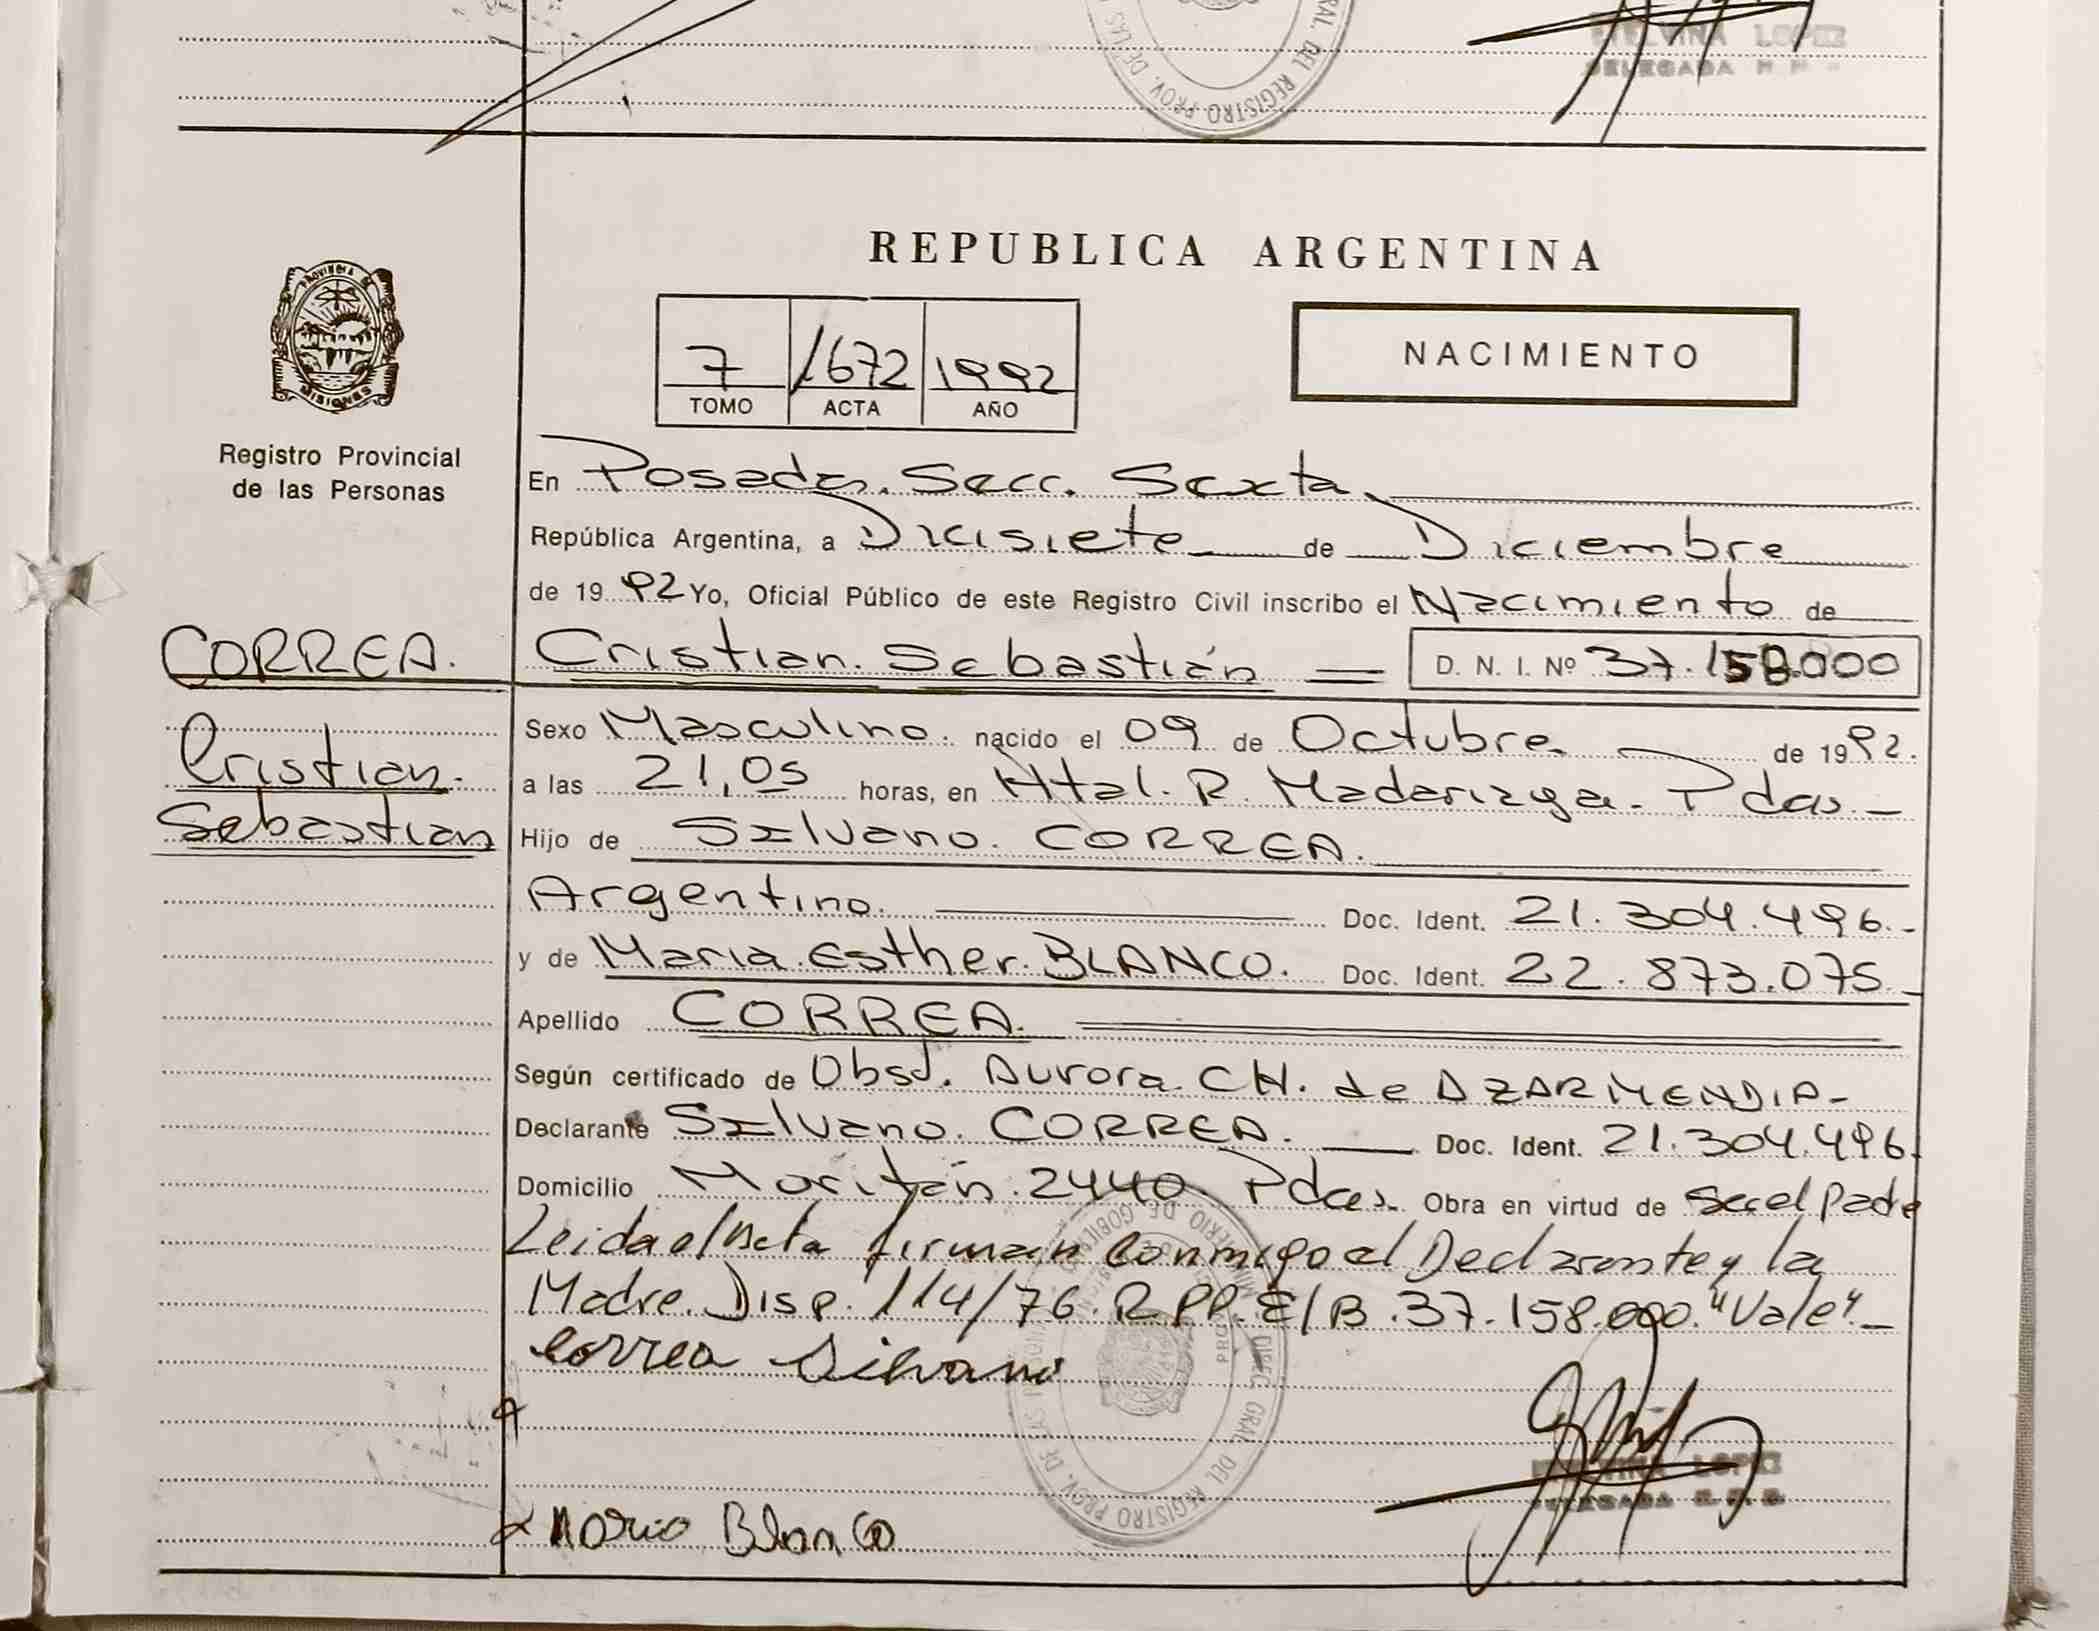 LOPEZ
DELEGADA
DEL REGISTRO PROV. DE LAS
REPUBLICA ARGENTINA
PROVINCIA DE
MISIONES
Registro Provincial
de las Personas
7 1672 1992
TOMO ACTA AÑO
NACIMIENTO
En Posadas. Secc. Sexta.
República Argentina, a Diecisiete de Diciembre
de 1992 Yo, Oficial Público de este Registro Civil inscribo el Nacimiento de
CORREA. Cristian. Sebastián D. N. I. Nº 37.158.000
Cristian.
Sebastian
Sexo Masculino. nacido el 09 de Octubre. de 1992.
a las 21,05 horas, en Htal. R. Madariaga. Pdas.-
Hijo de Silvano. CORREA.
Argentino. Doc. Ident. 21.304.496.-
y de Maria. Esther. BLANCO. Doc. Ident. 22.873.075.-
Apellido CORREA.
Según certificado de Obst. Aurora. CH. de AZARMENDIA-
Declarante Silvano. CORREA. Doc. Ident. 21.304.496.
Domicilio 2440. Pdas. Obra en virtud de Ser el Padre
Leida el Acta firman Conmigo el Declarante y la
Madre. Disp. 114/76. R.P.P. E/B. 37.158.000. "Vale".-
Correa Silvano
Maria Blanco
LOPEZ
DELEGADA
DIREC. GRAL. DEL REGISTRO PROV. DE LAS